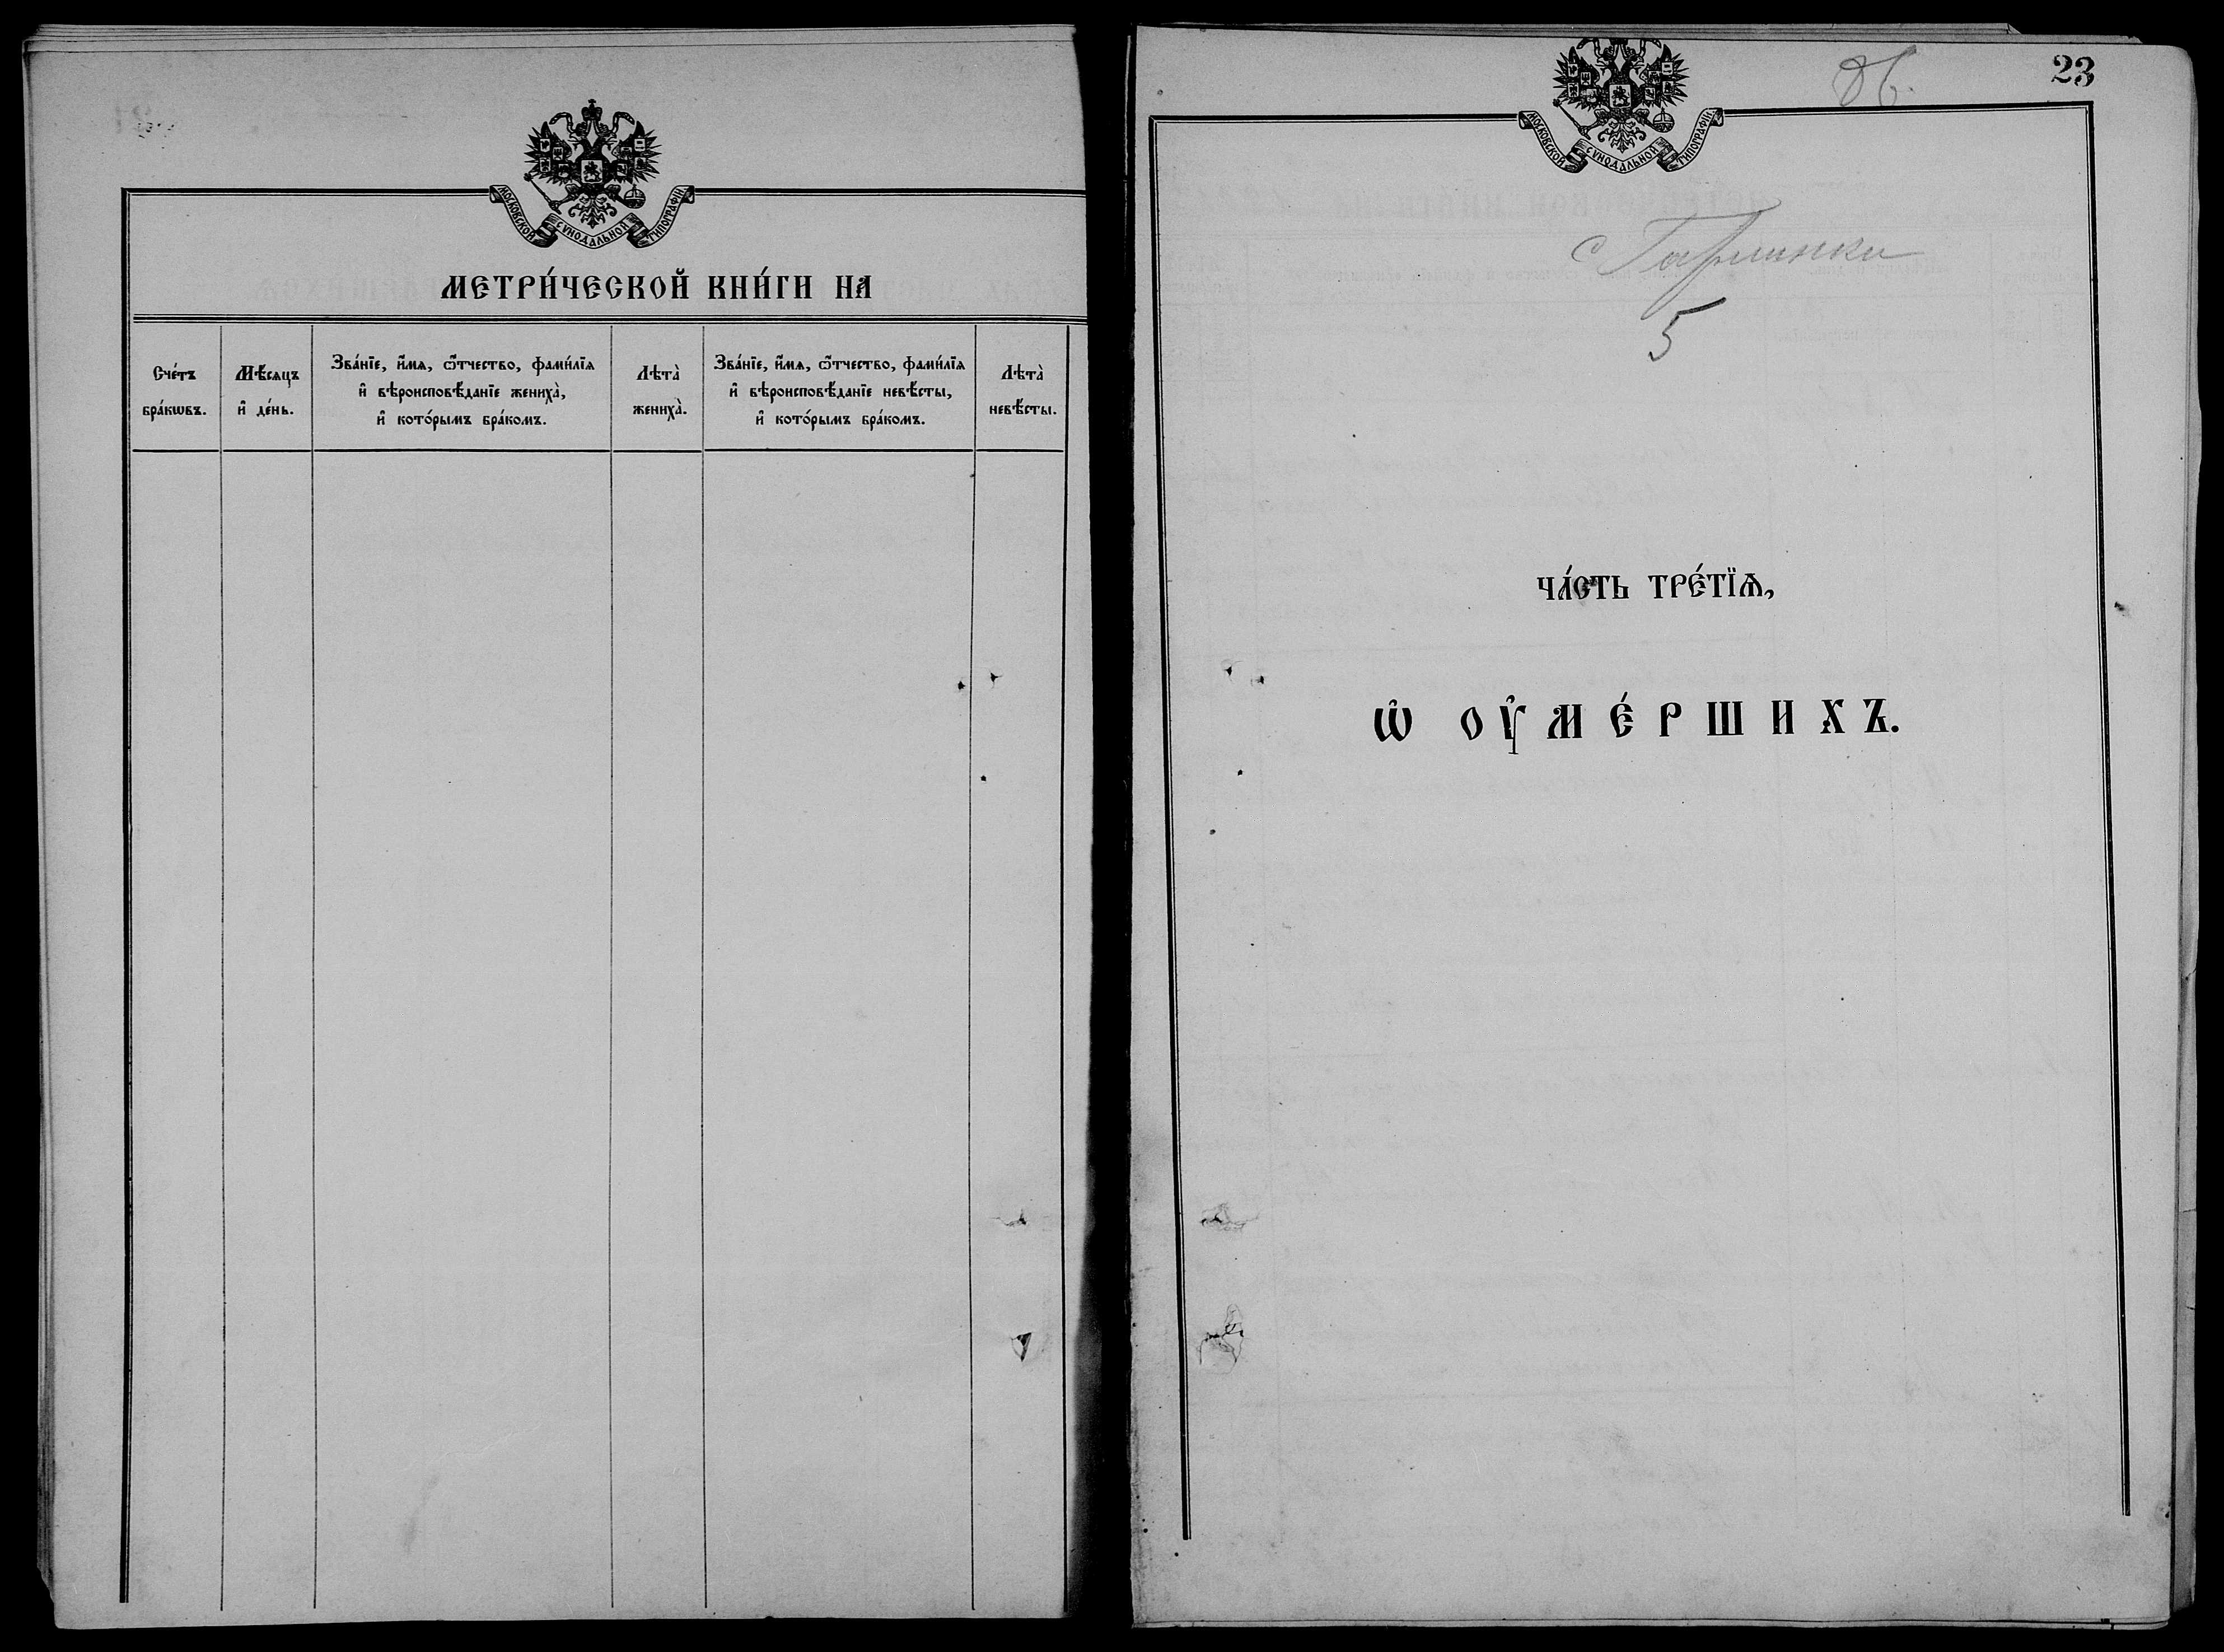 МОСКОВСКОЙ СѴНОДАЛЬНОЙ ТИПОГРАФІИ
МЕТРИ́ЧЕСКОЙ КНИ́ГИ НА
Сче́тъ бра́кѡвъ.
Мѣ́сѧцъ и҆ де́нь.
Зва́нїе, и҆́мѧ, ѻ҆́тчество, фами́лїѧ
и҆ вѣроисповѣ́данїе жениха̀,
и҆ кото́рымъ бра́комъ.
Лѣта̀ жениха̀.
Зва́нїе, и҆́мѧ, ѻ҆́тчество, фами́лїѧ
и҆ вѣроисповѣ́данїе невѣ́сты,
и҆ кото́рымъ бра́комъ.
Лѣта̀ невѣ́сты.
23
МОСКОВСКОЙ СѴНОДАЛЬНОЙ ТИПОГРАФІИ
с
5
ЧА́СТЬ ТРЕ́ТЇѦ,
Ѡ҆ ОУ҆МЕ́РШИХЪ.